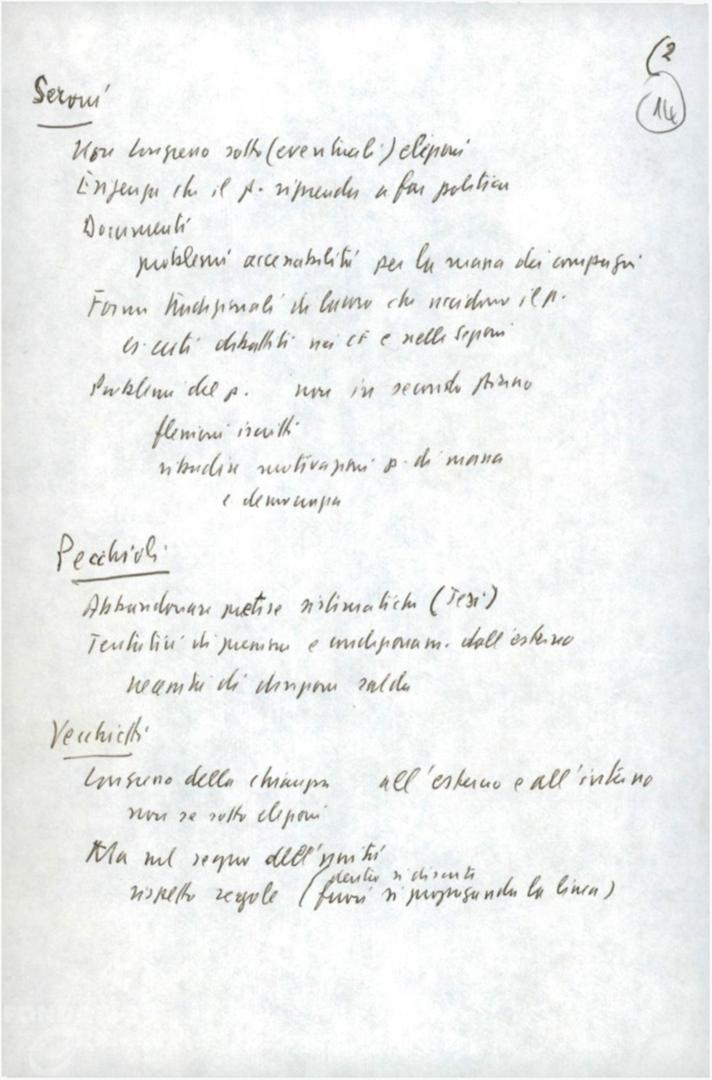 (2
14
Seroni
Non Congresso sotto (eventuali) elezioni
Esigenza che il p. riprenda a far politica
Documenti
problemi accessabilità per la massa dei compagni
Forme tradizionali di lavoro che uccidono il p.
es certi dibattiti nei CF e nelle Sezioni
Problemi del p. non in secondo piano
flessioni iscritti
ribadire motivazioni p. di massa
e democrazia
Pecchioli
Abbandonare pretese sistematiche (Tesi)
Tentativi di pressione e condizionam. dall'esterno
necessità di direzione salda
Vecchietti
Congresso della chiarezza all'esterno e all'interno
non se sotto elezioni
Ma nel segno dell'unità
dentro si discute
rispetto regole (fuori si propaganda la linea)